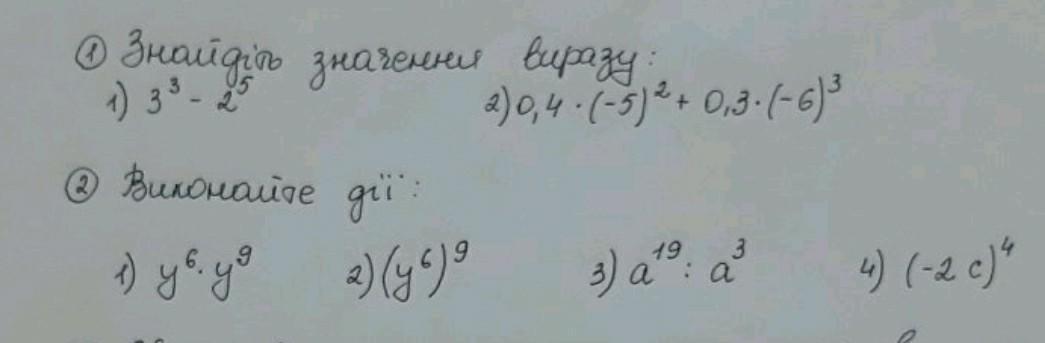 ① Знайдіть значення виразу:
1) 3³ - 2⁵ 2) 0,4 · (-5)² + 0,3 · (-6)³
② Виконайте дії:
1) y⁶ · y⁹ 2) (y⁶)⁹ 3) a¹⁹ : a³ 4) (-2c)⁴